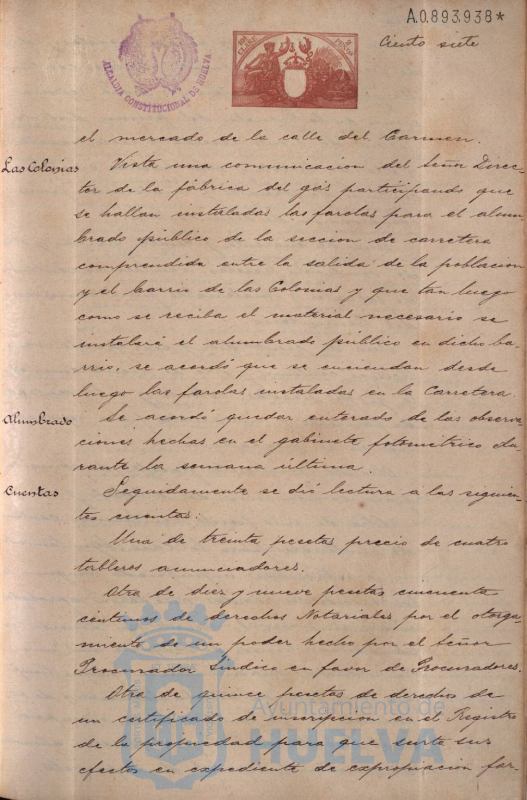 A.0.893.938*
Ciento siete
ALCALDIA CONSTITUCIONAL DE HUELVA
el mercado de la calle del Carmen.
Las Colonias
Vista una comunicacion del Señor Direc-
tor de la fábrica del gas participando que
se hallan instaladas las farolas para el alum
brado público de la seccion de carretera
comprendida entre la salida de la poblacion
y el barrio de las Colonias y que tan luego
como se reciba el material necesario se
instalará el alumbrado público en dicho ba-
rrio, se acordó que se enciendan desde
luego las farolas instaladas en la Carretera.
Alumbrado
Se acordó quedar enterado de las observa
ciones hechas en el gabinete fotométrico du-
rante la semana última.
Cuentas
Seguidamente se dió lectura a las siguien-
tes cuentas:
Una de treinta pesetas precio de cuatro
tableros anunciadores.
Otra de diez y nueve pesetas cincuenta
centimos de derechos Notariales por el otorga
miento de un poder hecho por el Señor
Procurador Sindico en favor de Procuradores.
Otra de quince pesetas de derechos de
un certificado de inscripcion en el Registro
de la propiedad para que surta sus
efectos en expediente de expropiacion for-
Ayuntamiento de
HUELVA